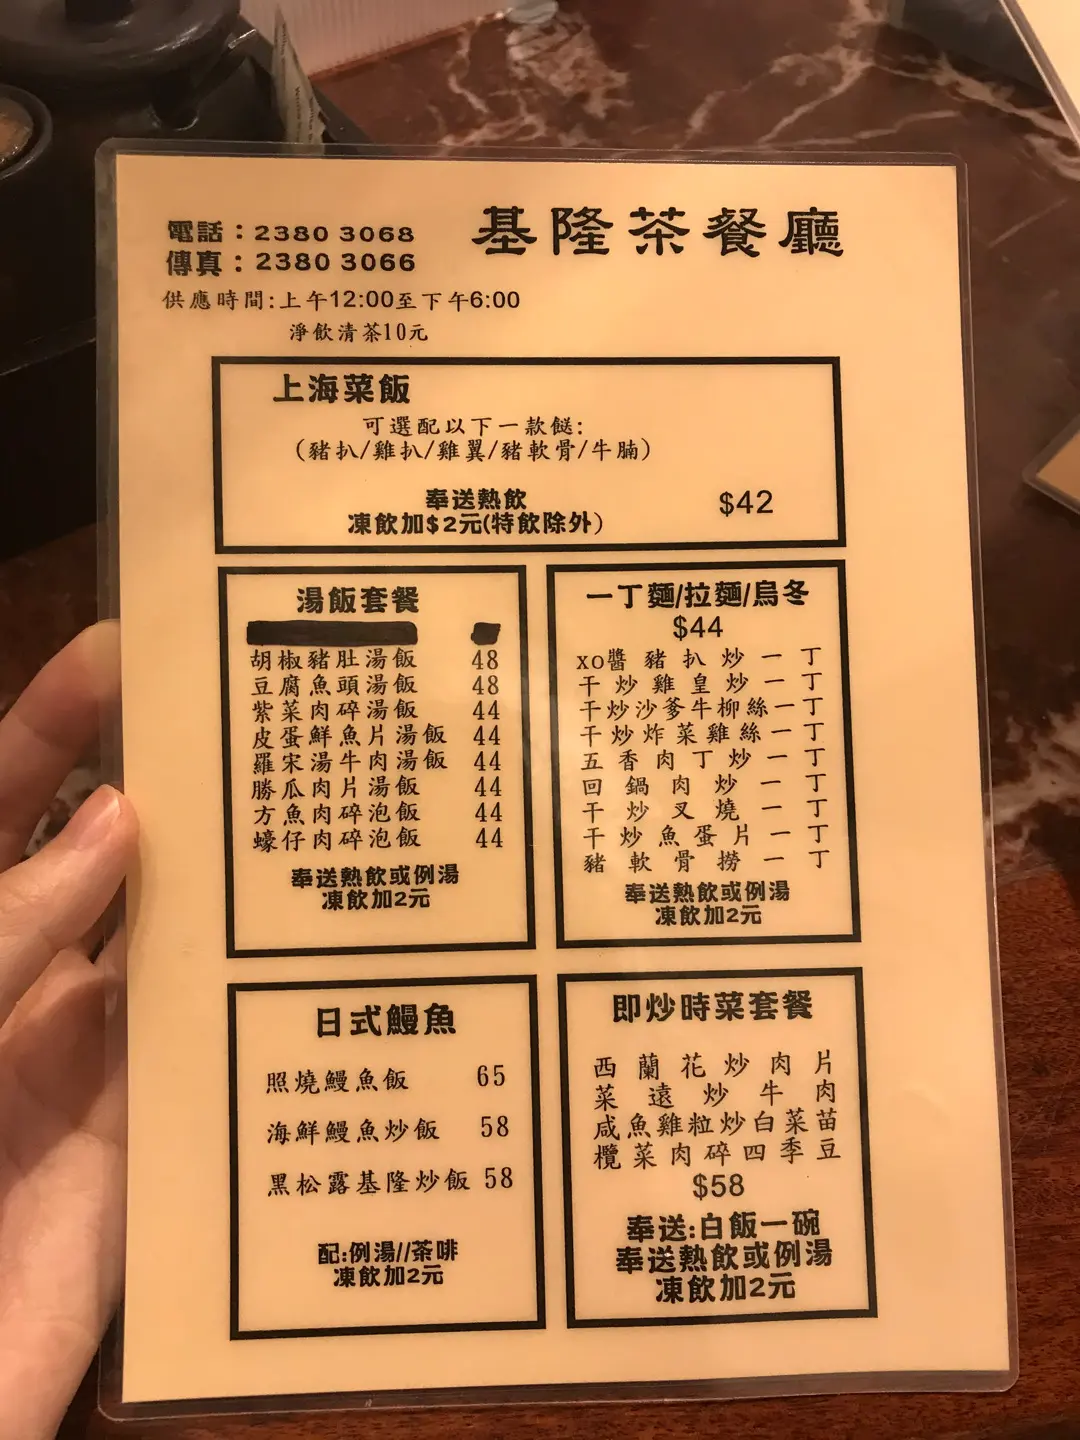 基隆茶餐廳
電話：2380 3068
傳真：2380 3066
供應時間:上午12:00至下午6:00
淨飲清茶10元
上海菜飯
可選配以下一款餸:
(豬扒/雞扒/雞翼/豬軟骨/牛腩)
奉送熱飲
凍飲加$2元(特飲除外)
$42
湯飯套餐
胡椒豬肚湯飯 48
豆腐魚頭湯飯 48
紫菜肉碎湯飯 44
皮蛋鮮魚片湯飯 44
羅宋湯牛肉湯飯 44
勝瓜肉片湯飯 44
方魚肉碎泡飯 44
蠔仔肉碎泡飯 44
奉送熱飲或例湯
凍飲加2元
一丁麵/拉麵/烏冬
$44
XO醬豬扒炒一丁
干炒雞皇炒一丁
干炒沙爹牛柳絲一丁
干炒炸菜雞絲一丁
五香肉丁炒一丁
回鍋肉炒一丁
干炒叉燒一丁
干炒魚蛋片一丁
豬軟骨撈一丁
奉送熱飲或例湯
凍飲加2元
日式鰻魚
照燒鰻魚飯 65
海鮮鰻魚炒飯 58
黑松露基隆炒飯 58
配:例湯//茶啡
凍飲加2元
即炒時菜套餐
西蘭花炒肉片
菜遠炒牛肉
咸魚雞粒炒白菜苗
欖菜肉碎四季豆
$58
奉送:白飯一碗
奉送熱飲或例湯
凍飲加2元